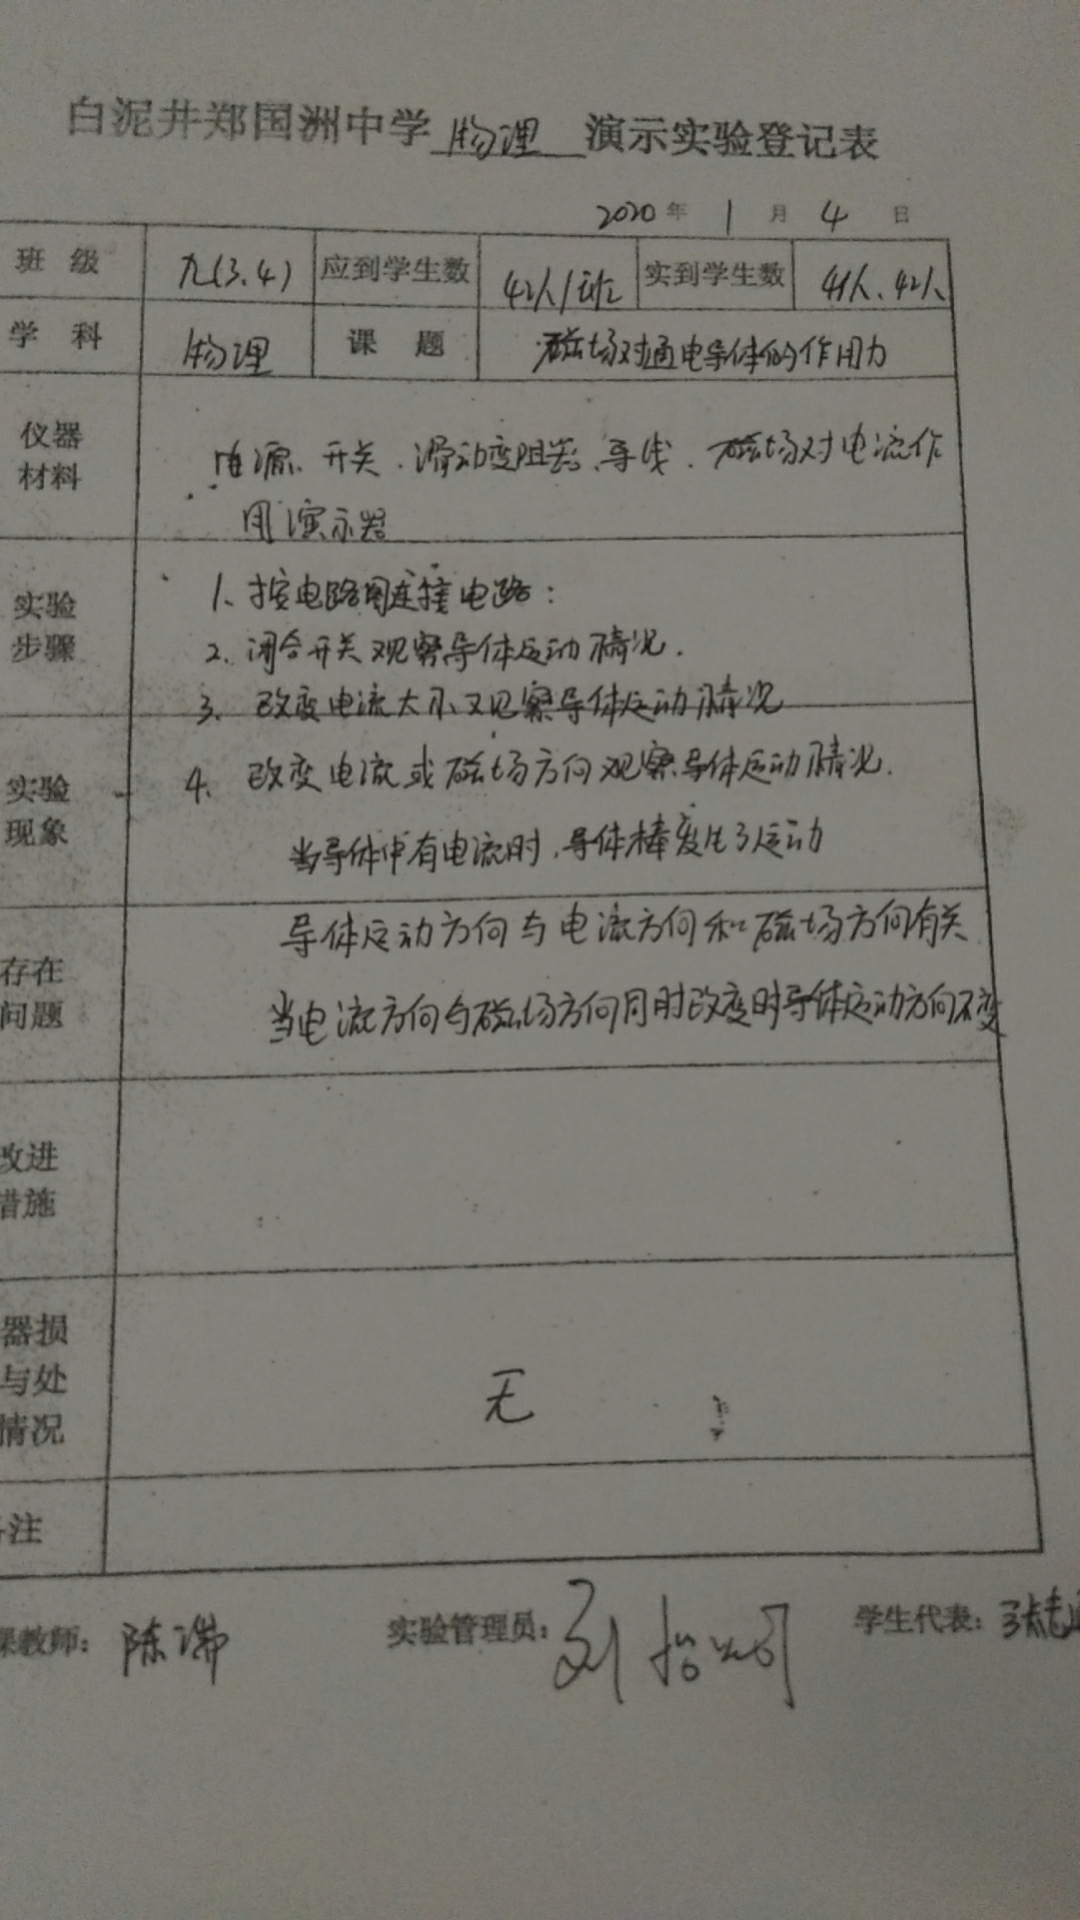 白泥井郑国洲中学 物理 演示实验登记表
2020 年 1 月 4 日
班 级 九(3.4) 应到学生数 42人/班 实到学生数 41人、42人
学 科 物理 课 题 磁场对通电导体的作用力
仪器
材料
电源、开关、滑动变阻器、导线、磁场对电流作
用演示器
实验
步骤
1、按电路图连接电路:
2、闭合开关观察导体运动情况.
3、改变电流大小观察导体运动情况
4、改变电流或磁场方向观察导体运动情况.
实验
现象
当导体中有电流时,导体棒发生了运动
导体运动方向与电流方向和磁场方向有关
当电流方向与磁场方向同时改变时导体运动方向不变
存在
问题
改进
措施
器损
与处
情况
无
注
课教师: 陈瑞 实验管理员: 刘 学生代表: